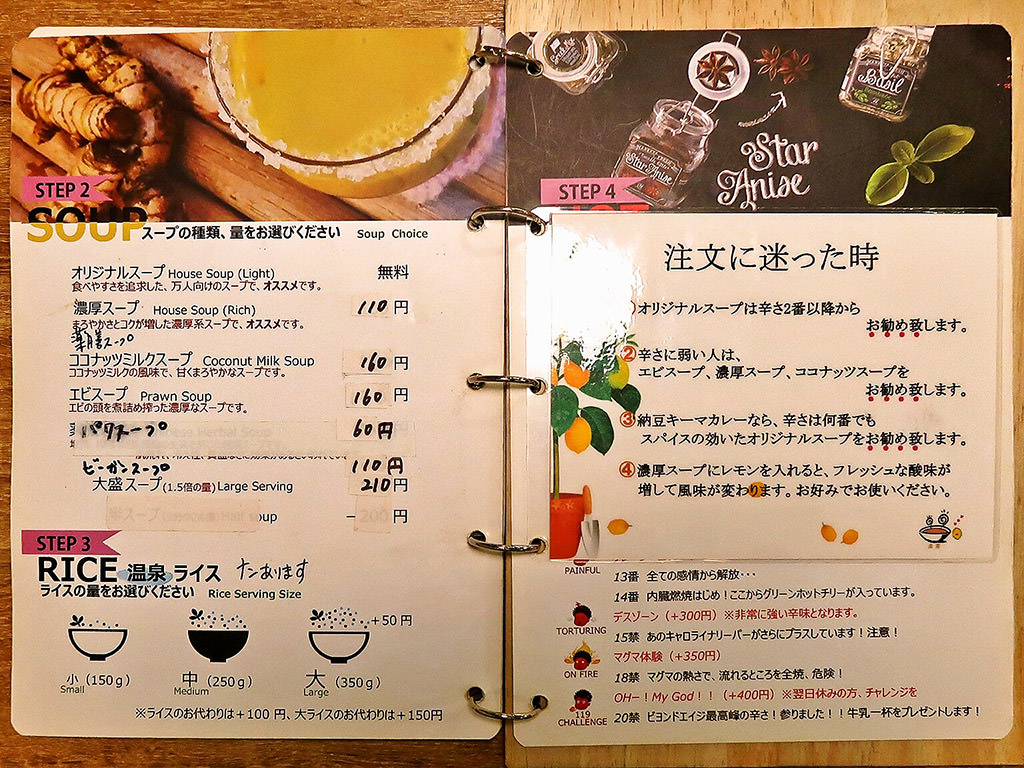 STEP 2
SOUP スープの種類、量をお選びください Soup Choice
オリジナルスープ House Soup (Light) 無料
食べやすさを追求した、万人向けのスープで、オススメです。
濃厚スープ House Soup (Rich) 110円
まろやかさとコクが増した濃厚系スープで、オススメです。
薬膳スープ
ココナッツミルクスープ Coconut Milk Soup 160円
ココナッツミルクの風味で、甘くまろやかなスープです。
エビスープ Prawn Soup 160円
エビの頭を煮詰め搾った濃厚なスープです。
パクスープ 60円
ビーガンスープ 110円
大盛スープ(1.5倍の量) Large Serving 210円
半スープ Half Soup -200円
STEP 3
RICE 温泉ライス たあります
ライスの量をお選びください Rice Serving Size
+50円
小（150g） 中（250g） 大（350g）
Small Medium Large
※ライスのお代わりは+100円、大ライスのお代わりは+150円
Star Anise
Basil
Star Anise
STEP 4
注文に迷った時
オリジナルスープは辛さ2番以降から
お勧め致します。
②辛さに弱い人は、
エビスープ、濃厚スープ、ココナッツスープを
お勧め致します。
③納豆キーマカレーなら、辛さは何番でも
スパイスの効いたオリジナルスープをお勧め致します。
④濃厚スープにレモンを入れると、フレッシュな酸味が
増して風味が変わります。お好みでお使いください。
PAINFUL
13番 全ての感情から解放･･･
14番 内臓燃焼はじめ！ここからグリーンホットチリーが入っています。
デスゾーン（+300円）※非常に強い辛味となります。
TORTURING
15禁 あのキャロライナリーパーがさらにプラスしています！注意！
マグマ体験（+350円）
ON FIRE
18禁 マグマの熱さで、流れるところを全焼、危険！
OHー！My God！！（+400円）※翌日休みの方、チャレンジを
119 CHALLENGE
20禁 ビヨンドエイジ最高峰の辛さ！参りました！！牛乳一杯をプレゼントします！